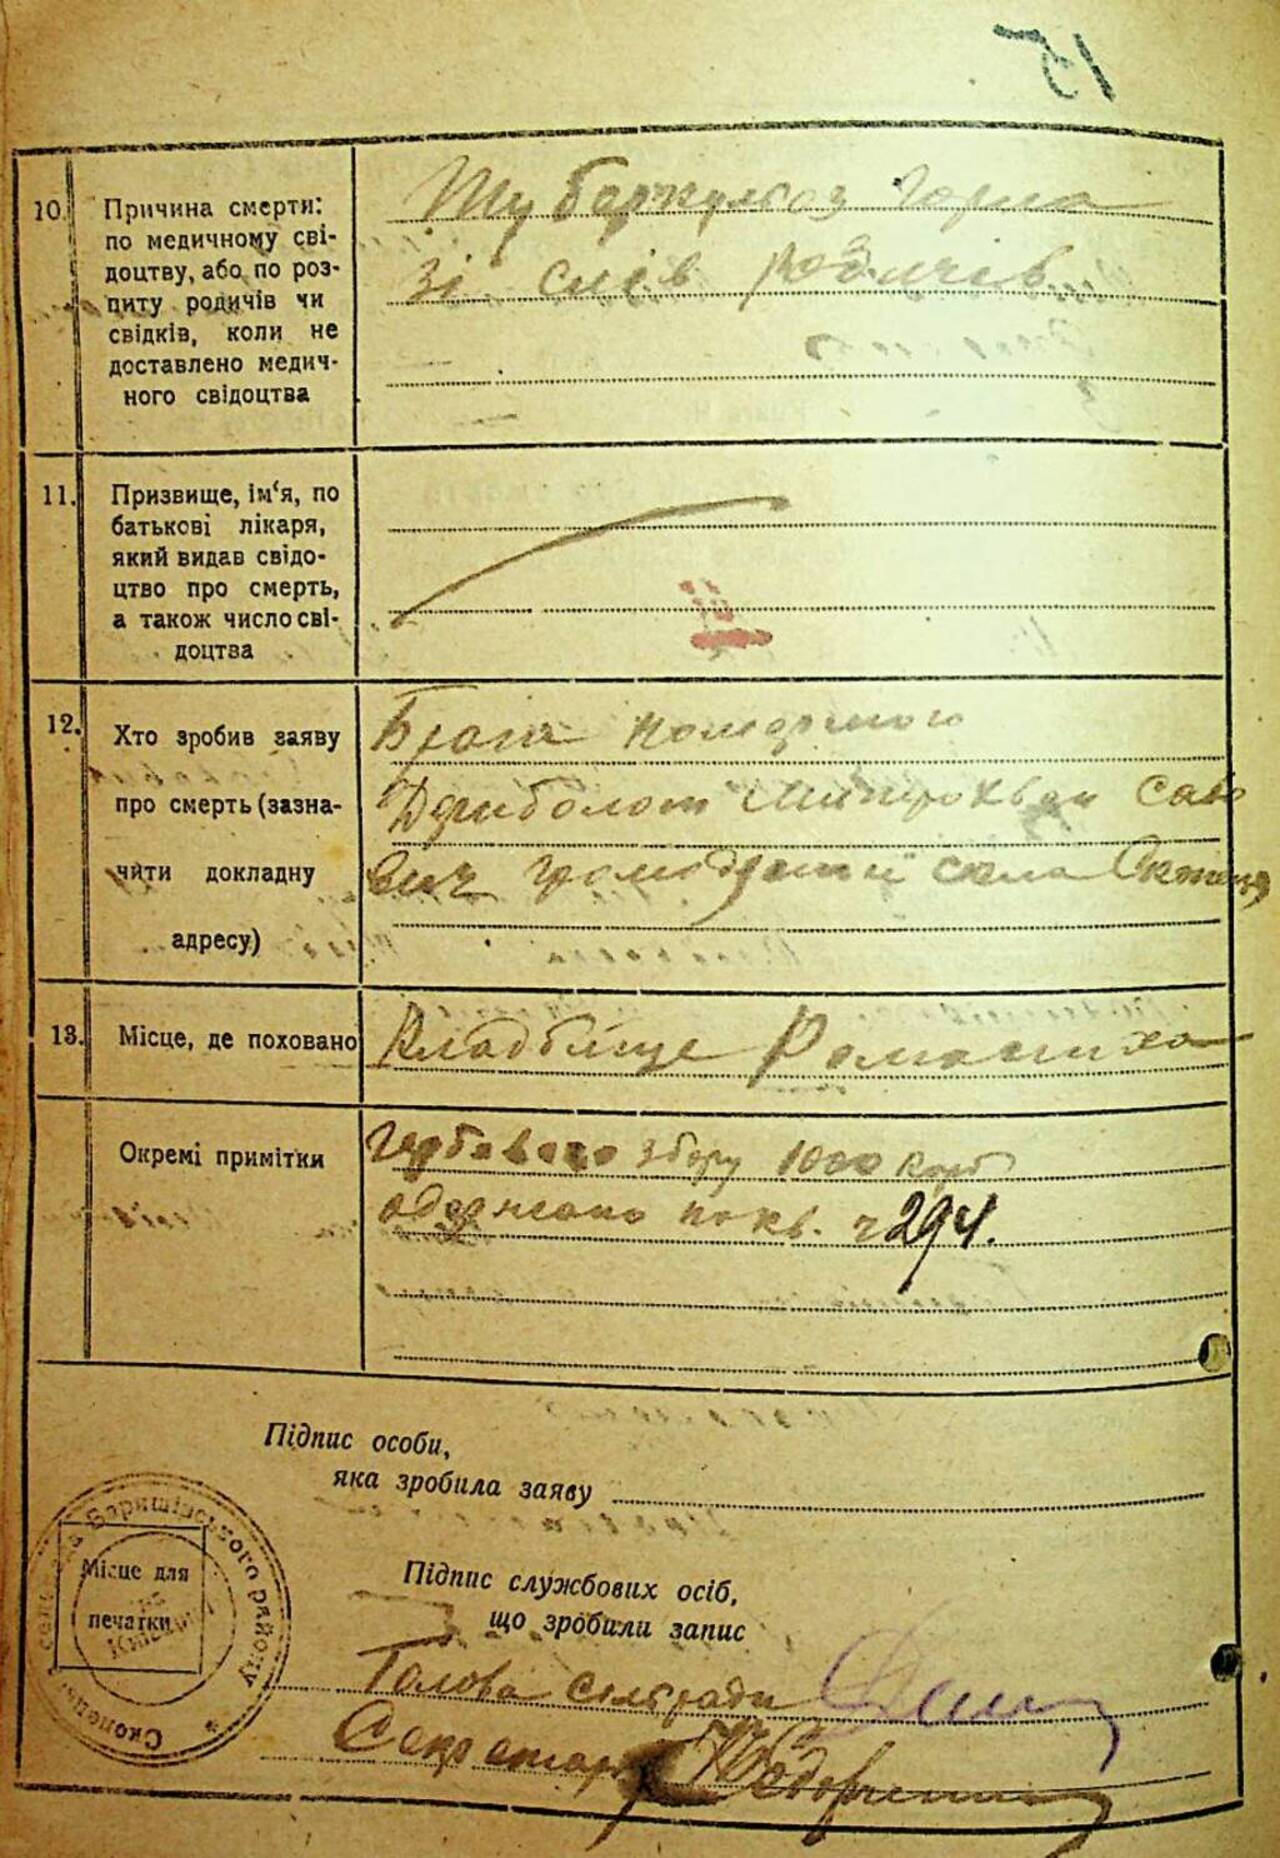 15
10. Причина смерти:
по медичному сві-
доцтву, або по роз-
питу родичів чи
свідків, коли не
доставлено медич-
ного свідоцтва
Туберкулоз горла
зі слів родичів
11. Призвище, ім‘я, по
батькові лікаря,
який видав свідо-
цтво про смерть,
а також число сві-
доцтва
12. Хто зробив заяву
про смерть (зазна-
чити докладну
адресу)
Брат померлого
Дриболот Митрохван Сав
вич громодянин села
13. Місце, де поховано
Кладбище Романиха
Окремі примітки
Гербового збору 1000 карб
одержано по кв. ч 294.
Підпис особи,
яка зробила заяву
Місце для
печатки
Баришівського району
Підпис службових осіб,
що зробили запис
Голова сільради
Секретар